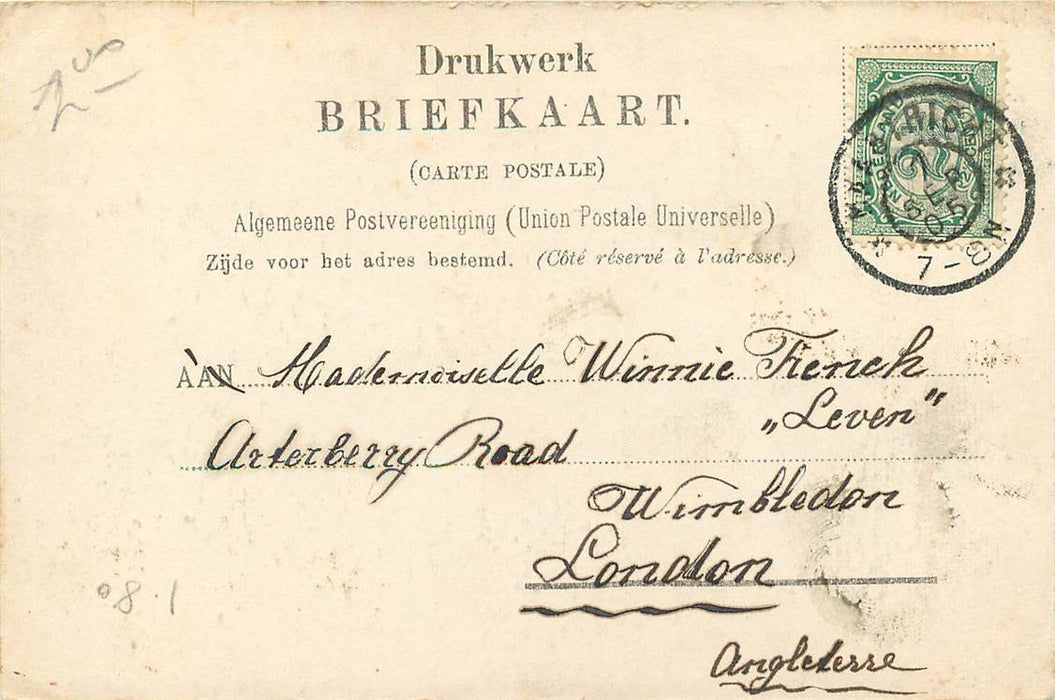 Drukwerk
BRIEFKAART.
(CARTE POSTALE)
Algemeene Postvereeniging (Union Postale Universelle)
Zijde voor het adres bestemd. (Côté réservé à l'adresse.)
AAN Mademoiselle Winnie French
„Leven"
Arterberry Road
Wimbledon
London
Angleterre
7-8N
08.1